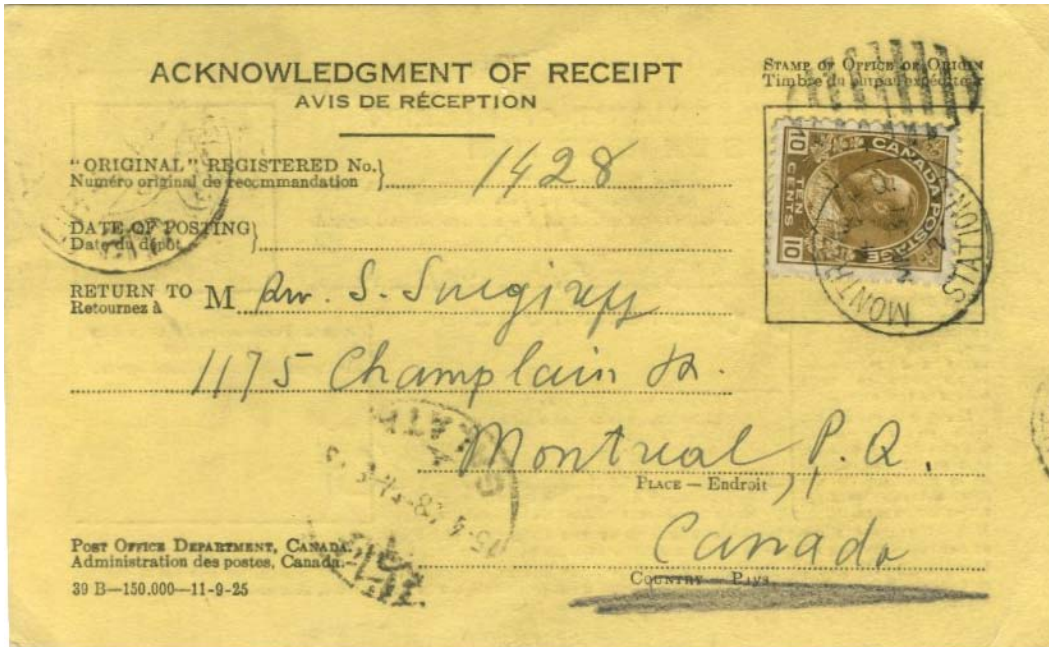 ACKNOWLEDGMENT OF RECEIPT
AVIS DE RÉCEPTION
STAMP OF OFFICE OF ORIGIN
Timbre du bureau expéditeur
CANADA POSTAGE
10 TEN CENTS 10
STATION
"ORIGINAL" REGISTERED No.}
Numéro original de recommandation
1428
DATE OF POSTING}
Date du dépôt
RETURN TO M
Retournez à
S.
1175 Champlain
Montreal, P.Q.
PLACE — Endroit
Canada
COUNTRY — Pays
POST OFFICE DEPARTMENT, CANADA.
Administration des postes, Canada.
39 B—150.000—11-9-25